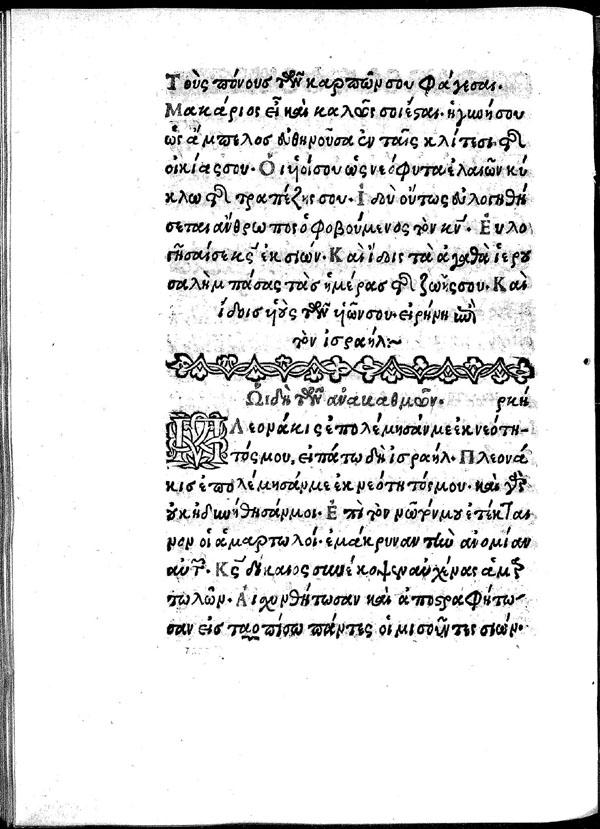 Τοὺς πόνους τῶν καρπῶν σου φάγεσαι.
Μακάριος εἶ καὶ καλῶς σοι ἔσται. ἡ γυνή σου
ὡς ἄμπελος εὐθηνοῦσα ἐν ταῖς κλίτεσι τῆς
οἰκίας σου. Οἱ υἱοί σου ὡς νεόφυτα ἐλαιῶν κύ
κλῳ τῆς τραπέζης σου. Ἰδοὺ οὕτως εὐλογηθή
σεται ἄνθρωπος ὁ φοβούμενος τὸν κν. Εὐλο
γήσαι σε κς ἐκ σιών. Καὶ ἴδοις τὰ ἀγαθὰ ἱερου
σαλὴμ πάσας τὰς ἡμέρας τῆς ζωῆς σου. Καὶ
ἴδοις υἱοὺς τῶν υἱῶν σου. εἰρήνη ἐπὶ
τὸν ἰσραήλ:~
Ὠιδὴ τῶν ἀναβαθμῶν. ρκή
ΠΛεονάκις ἐπολέμησάν με ἐκ νεότη-
τός μου, εἰπάτω δὴ ἰσραήλ. Πλεονά
κις ἐπολέμησάν με ἐκ νεότητός μου. καὶ γὰρ
οὐκ ἠδυνήθησάν μοι. Ἐπὶ τὸν νῶτόν μου ἐτέκται
νον οἱ ἁμαρτωλοί. ἐμάκρυναν τὴν ἀνομίαν
αὐτῶν. Κς δίκαιος συνέκοψεν αὐχένας ἁμαρ
τωλῶν. Αἰσχυνθήτωσαν καὶ ἀποστραφήτω-
σαν εἰς τὰ ὀπίσω πάντες οἱ μισοῦντες σιών.